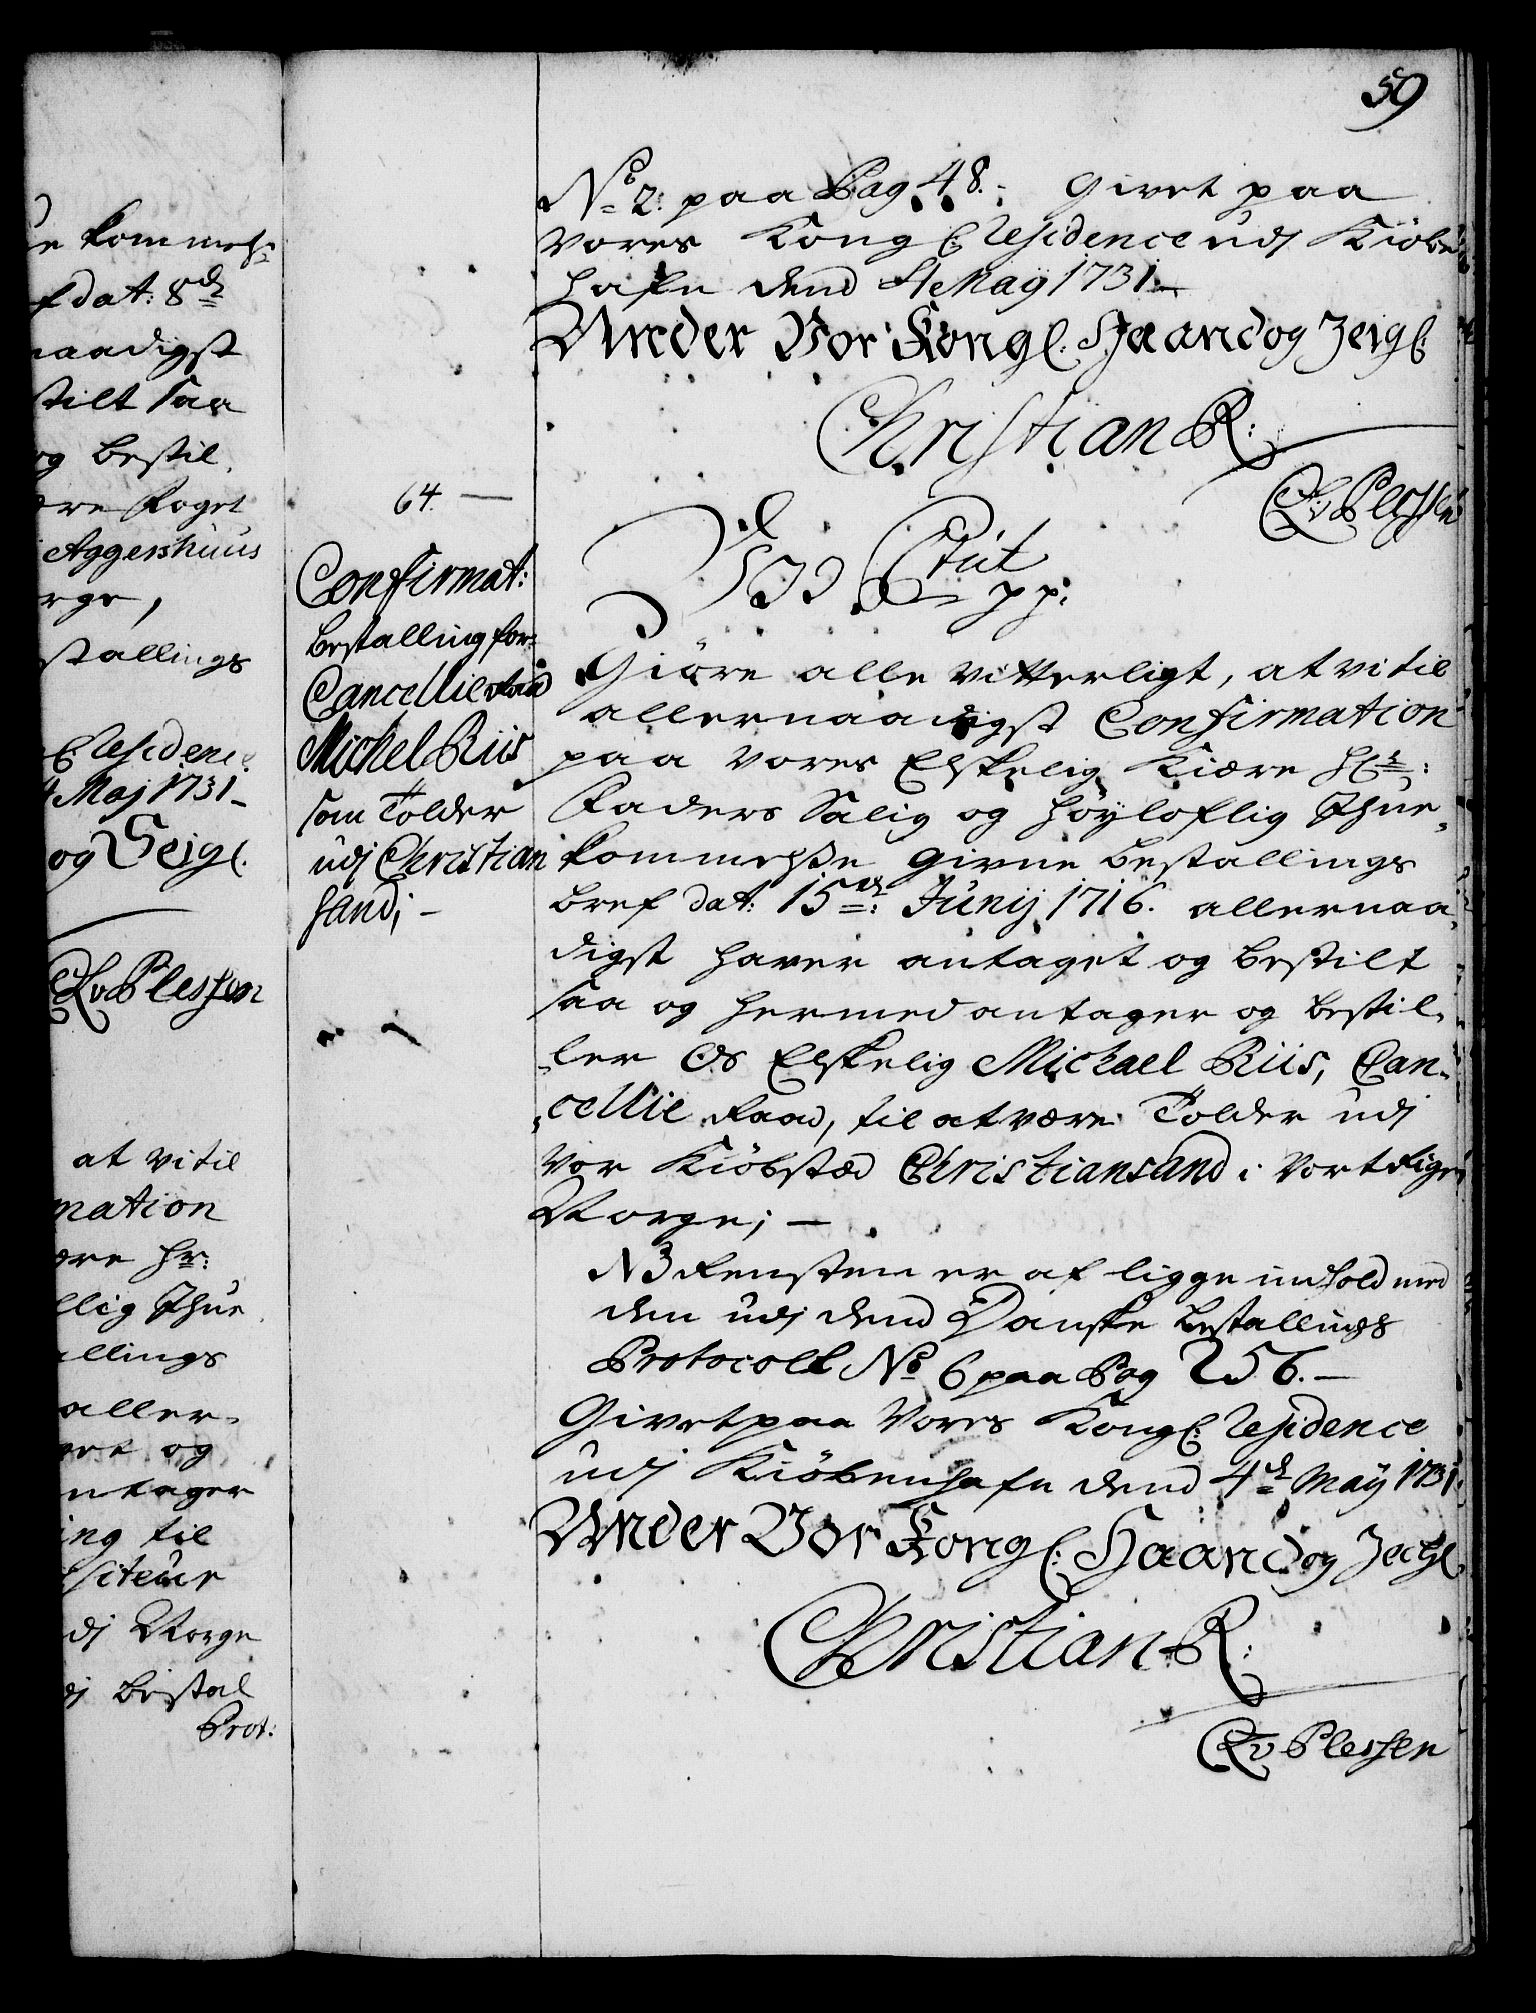 59
No 2: paa Pag 48. Givet paa
Vores Kongl: Residence udj Kiöben
hafn dend 4 May 1731.
Under Vor Kongl: Haand og Zeigl:
Christian R:
CAv Plessen
64.
Confirmat:
bestalling for
Cancellie Raad
Michel Riis
som Tolder
udj Christian
sand; -
Tit
pp:
Giöre alle vitterligt, at vi til
allernaadigst Confirmation
paa Vores Elskelig Kiære Hr:
Faders Salig og höyloflig Ihue,
kommelse givne bestallings
bref dat: 15de: Junij 1716. allernaa,
digst haver antaget og bestilt
saa og hermed antager og bestil,
ler Os Elskelig Michael Riis, Can,
cellie Raad, til at være Tolder udj
Vor Kiöbstæd Christiansand i Vort Rige
Norge; -
NB Rensten er af lige indhold med
den udj dend Danske bestallings
Protocoll No 6 paa Pag 256. -
Givet paa Vores Kongl: Residence
udj Kiöbenhafn dend 4de May 1731
Under Vor Kongl: Haand og Zeigl
Christian R:
CAv Plessen
kommelse
f dat: 8de
naadigst
stilt saa
og bestil,
ære Foget
Aggershuus
rge,
stallings
Residence
4 Maj 1731 -
og Seigl.
CAv Plessen
at vi til
mation
ære Hr:
flig Ihue,
allings
aller,
get og
ntager
ing til
siteur
dj Norge
dj bestal
Prot: